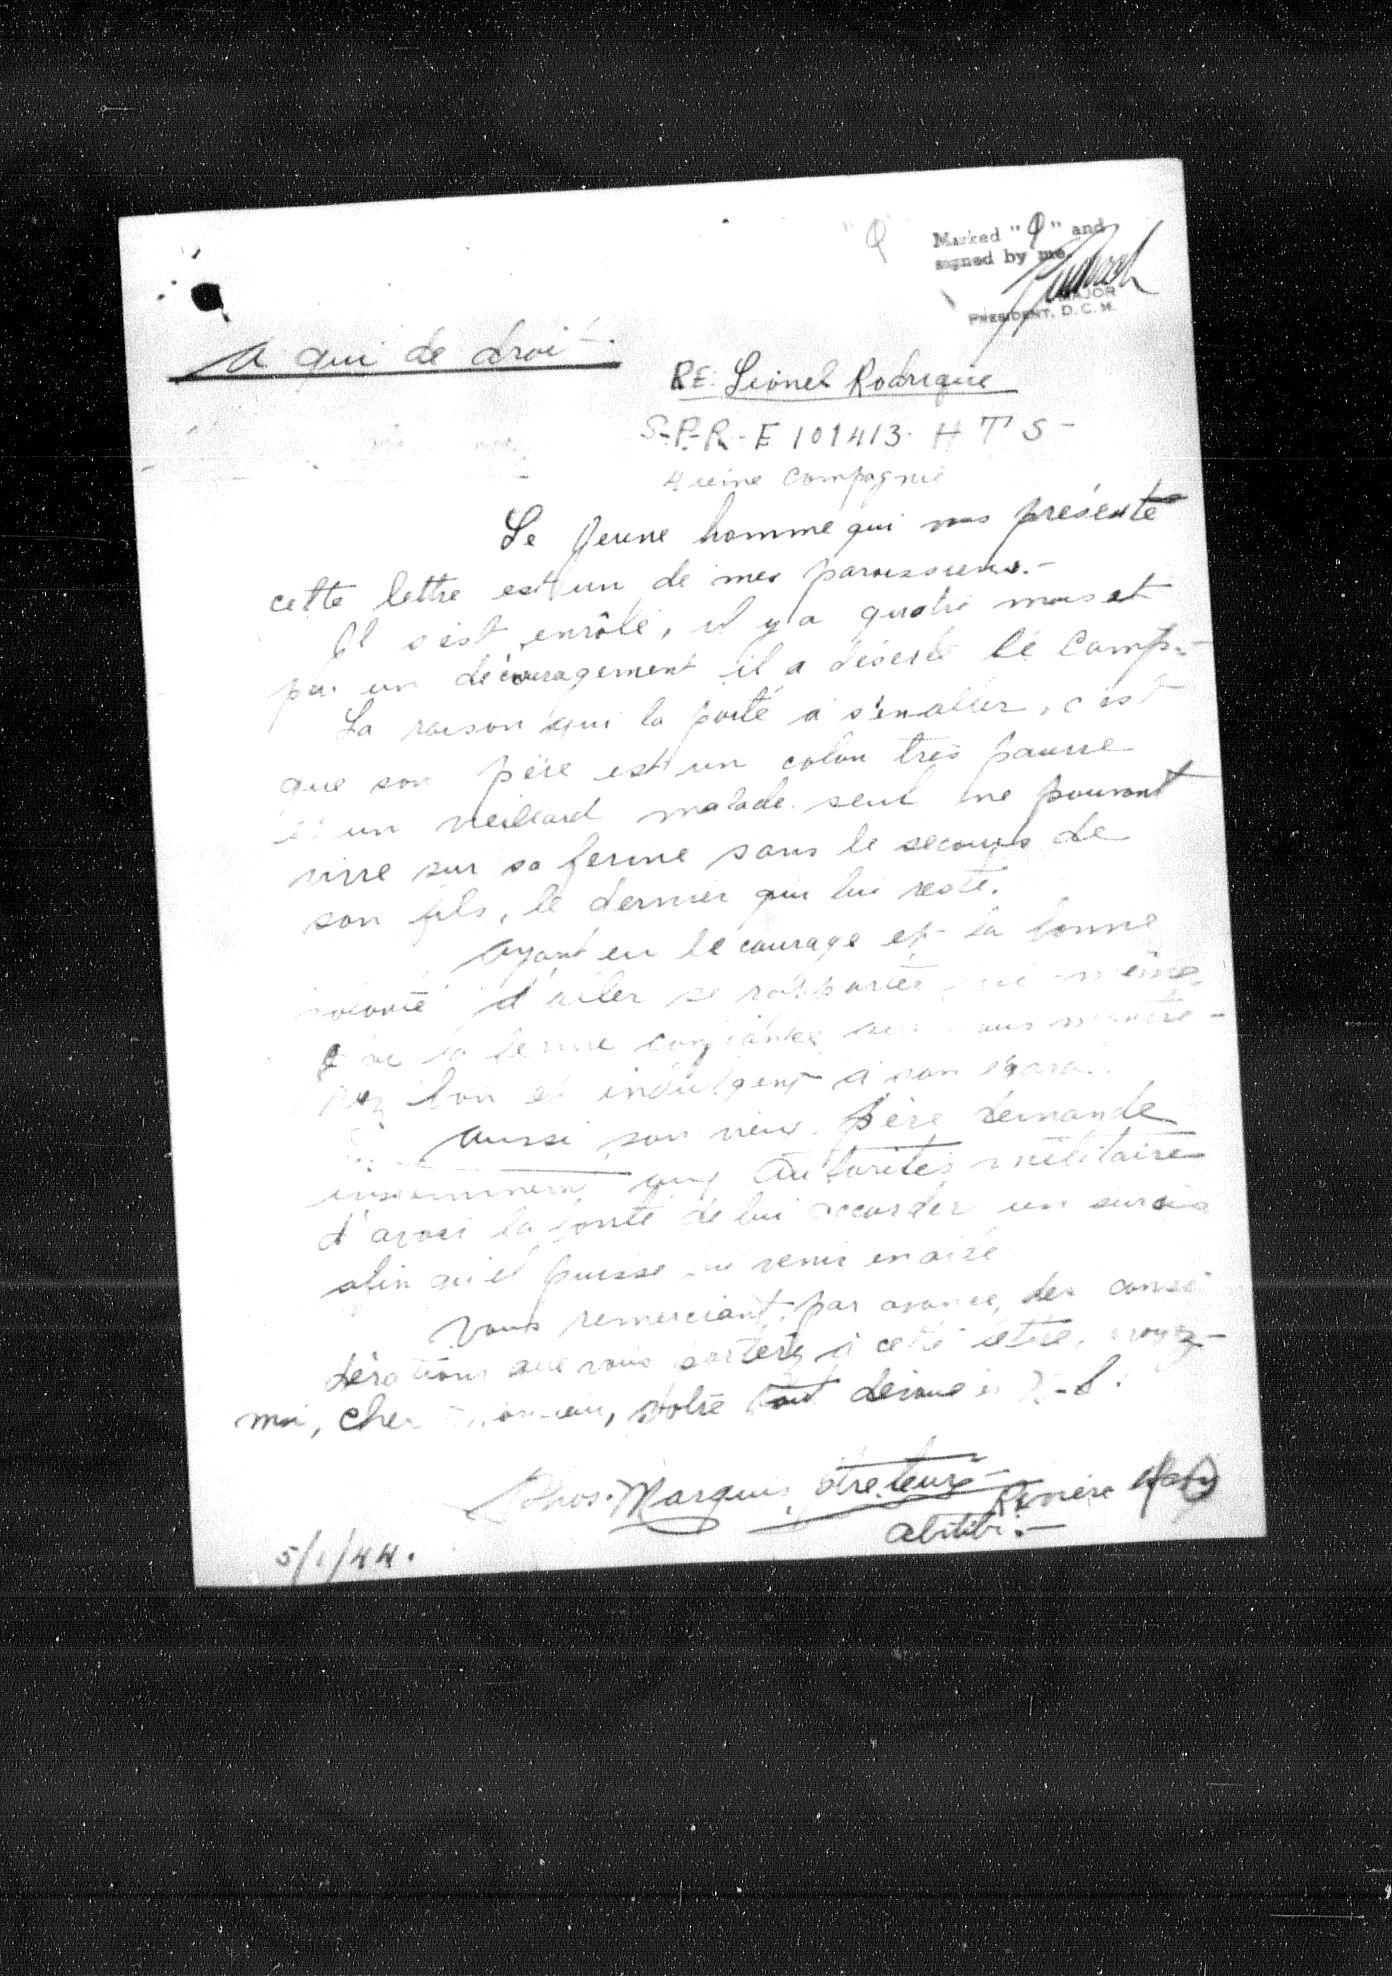 "Q"
Marked "Q" and
signed by me
MAJOR
PRESIDENT, D.C.M.
A qui de droit.
RE: Lionel Rodrigue
S.P.R. - E 101413. H T S -
4ième Compagnie
Le jeune homme qui vous présente
cette lettre est un de mes paroissiens.-
Il s'est enrôlé, il y a quatre mois et
par un découragement il a déserté le Camp.-
La raison qui l'a porté à s'en aller, c'est
que son père est un colon très pauvre
et un vieillard malade seul ne pouvant
vivre sur sa ferme sans le secours de
son fils, le dernier qui lui reste.
Ayant eu le courage et la bonne
volonté d'aller se rapporter lui-même
j'ai la ferme confiance que vous montre-
rez bon et indulgent à son égard.
Aussi son vieux père demande
instamment aux autorités militaires
d'avoir la bonté de lui accorder un sursis
afin qu'il puisse lui venir en aide
Vous remerciant, par avance, des consi
dérations que vous porterez à cette lettre, croyez-
moi, cher Monsieur, votre tout dévoué en N.-S.
Thos. Marquis, ptre.
Rivière
Abitibi.-
5/1/44.